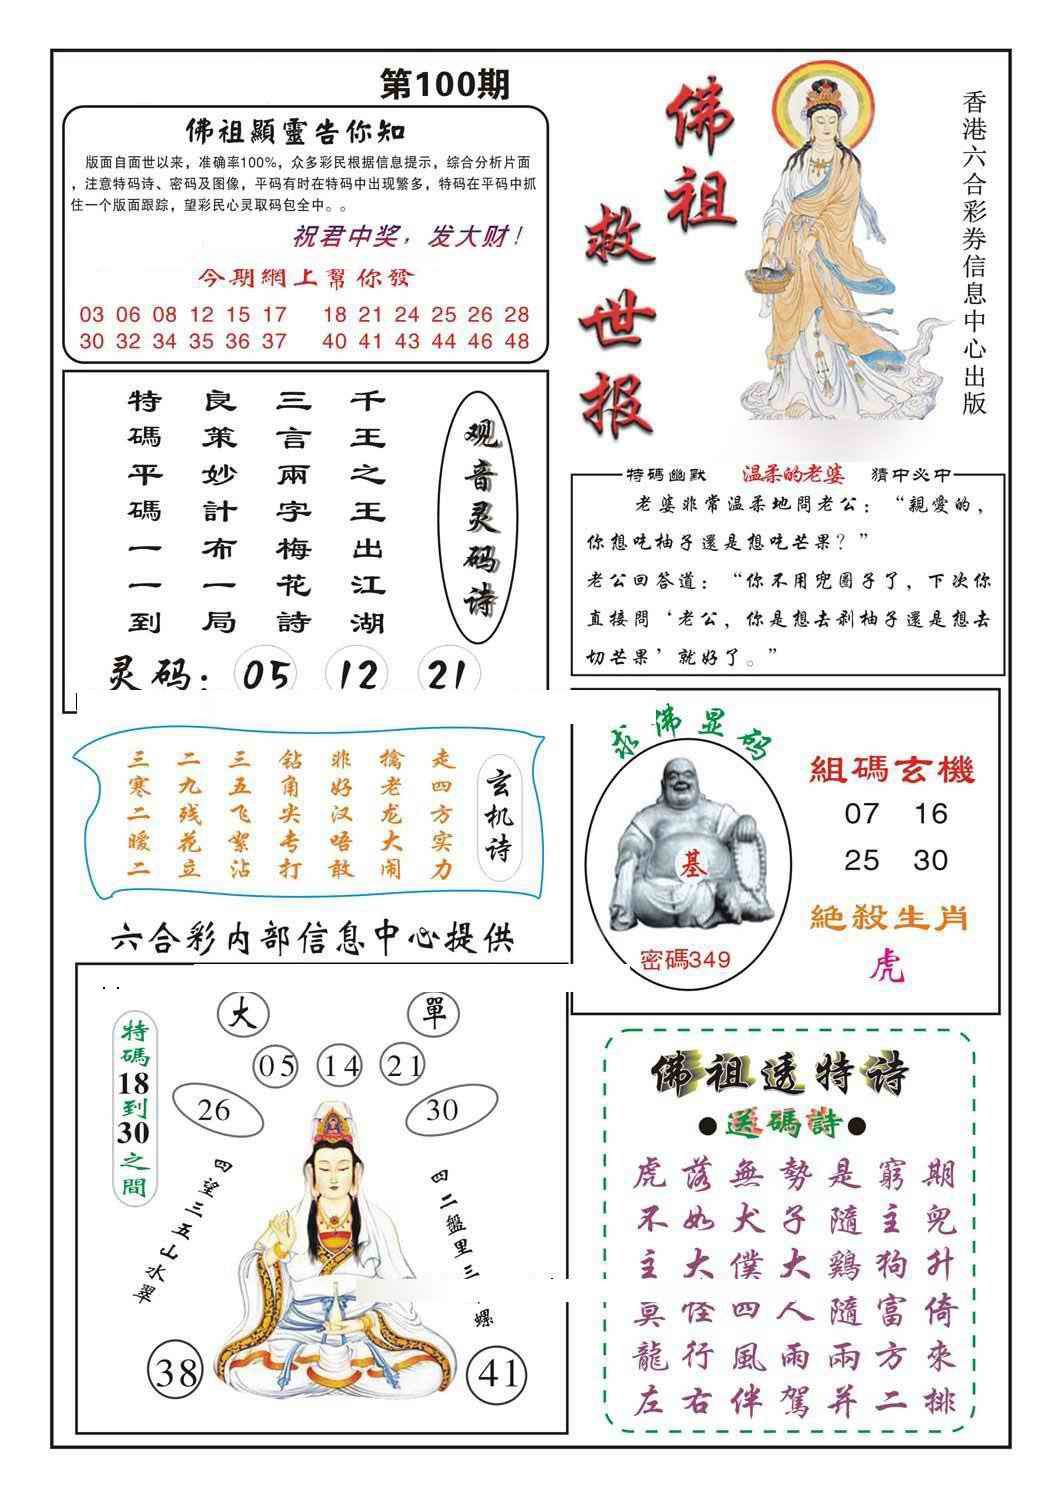 第100期
佛祖顯靈告你知
版面自面世以来，准确率100%，众多彩民根据信息提示，综合分析片面
，注意特码诗、密码及图像，平码有时在特码中出现繁多，特码在平码中抓
住一个版面跟踪，望彩民心灵取码包全中。。
祝君中奖，发大财！
今期網上幫你發
03 06 08 12 15 17 18 21 24 25 26 28
30 32 34 35 36 37 40 41 43 44 46 48
佛祖
救世报
香港六合彩券信息中心出版
观音灵码诗
千王之王出江湖
三言兩字梅花詩
良策妙計布一局
特碼平碼一一到
灵码：05 12 21
特碼幽默 温柔的老婆 猜中必中
老婆非常温柔地問老公：“親愛的，
你想吃柚子還是想吃芒果？”
老公回答道：“你不用兜圈子了，下次你
直接問‘老公，你是想去剁柚子還是想去
切芒果’就好了。”
玄机诗
走四方实力
擒老龙大闹
非好汉唔敢
钻角尖专打
三五飞絮沾
二九残花立
三寒二暧二
求佛显码
基
密碼349
組碼玄機
07 16
25 30
絕殺生肖
虎
六合彩内部信息中心提供
特碼18到30之間
大 單
05 14 21
26 30
四望三五山水翠
四二盤里三
螺
38 41
佛祖透特诗
●送碼詩●
虎落無勢是窮期
不如犬子隨主兜
主大僕大鷄狗升
怪四人隨富倚
龍行風雨兩方來
左右伴駕并二排